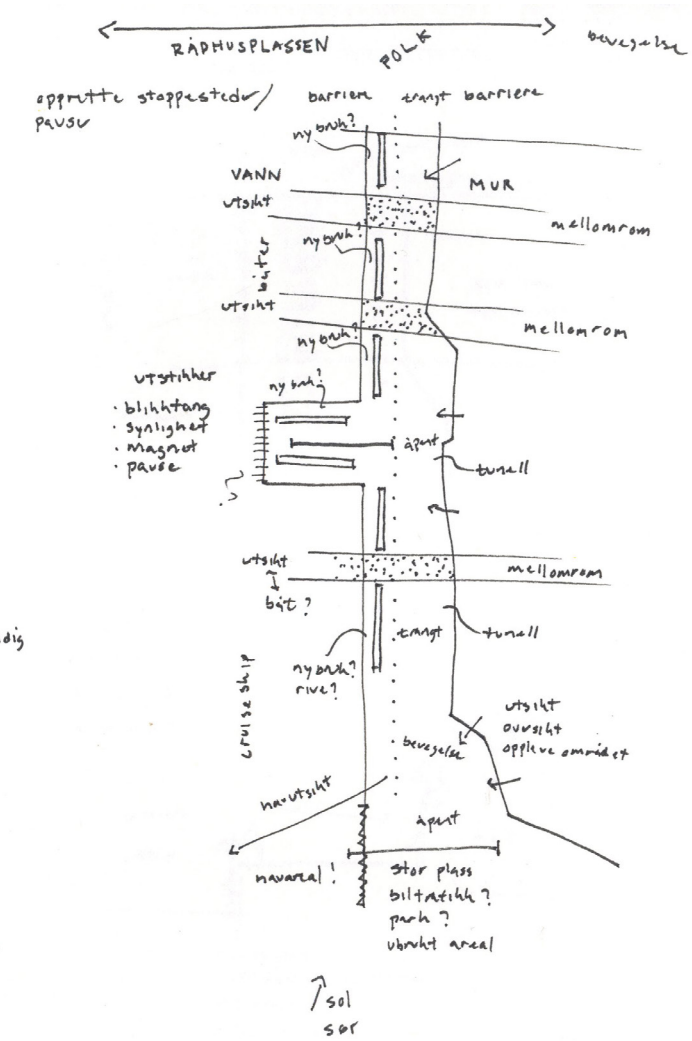 RÅDHUSPLASSEN
FOLK
bevegelse
opprette stoppesteder/
pause
barriere
trangt barriere
ny bruk?
VANN
MUR
utsikt
mellomrom
ny bruk?
båter
utsikt
mellomrom
ny bruk?
utstikker
· blikkfang
· synlighet
· magnet
· pause
ny bruk?
åpent
tunell
utsikt
båt?
mellomrom
dig
trangt
tunell
ny bruk?
rive?
cruiseship
utsikt
oversikt
oppleve området
bevegelse
havutsikt
åpent
havareal!
stor plass
biltrafikk?
park?
ubrukt areal
sol
sør